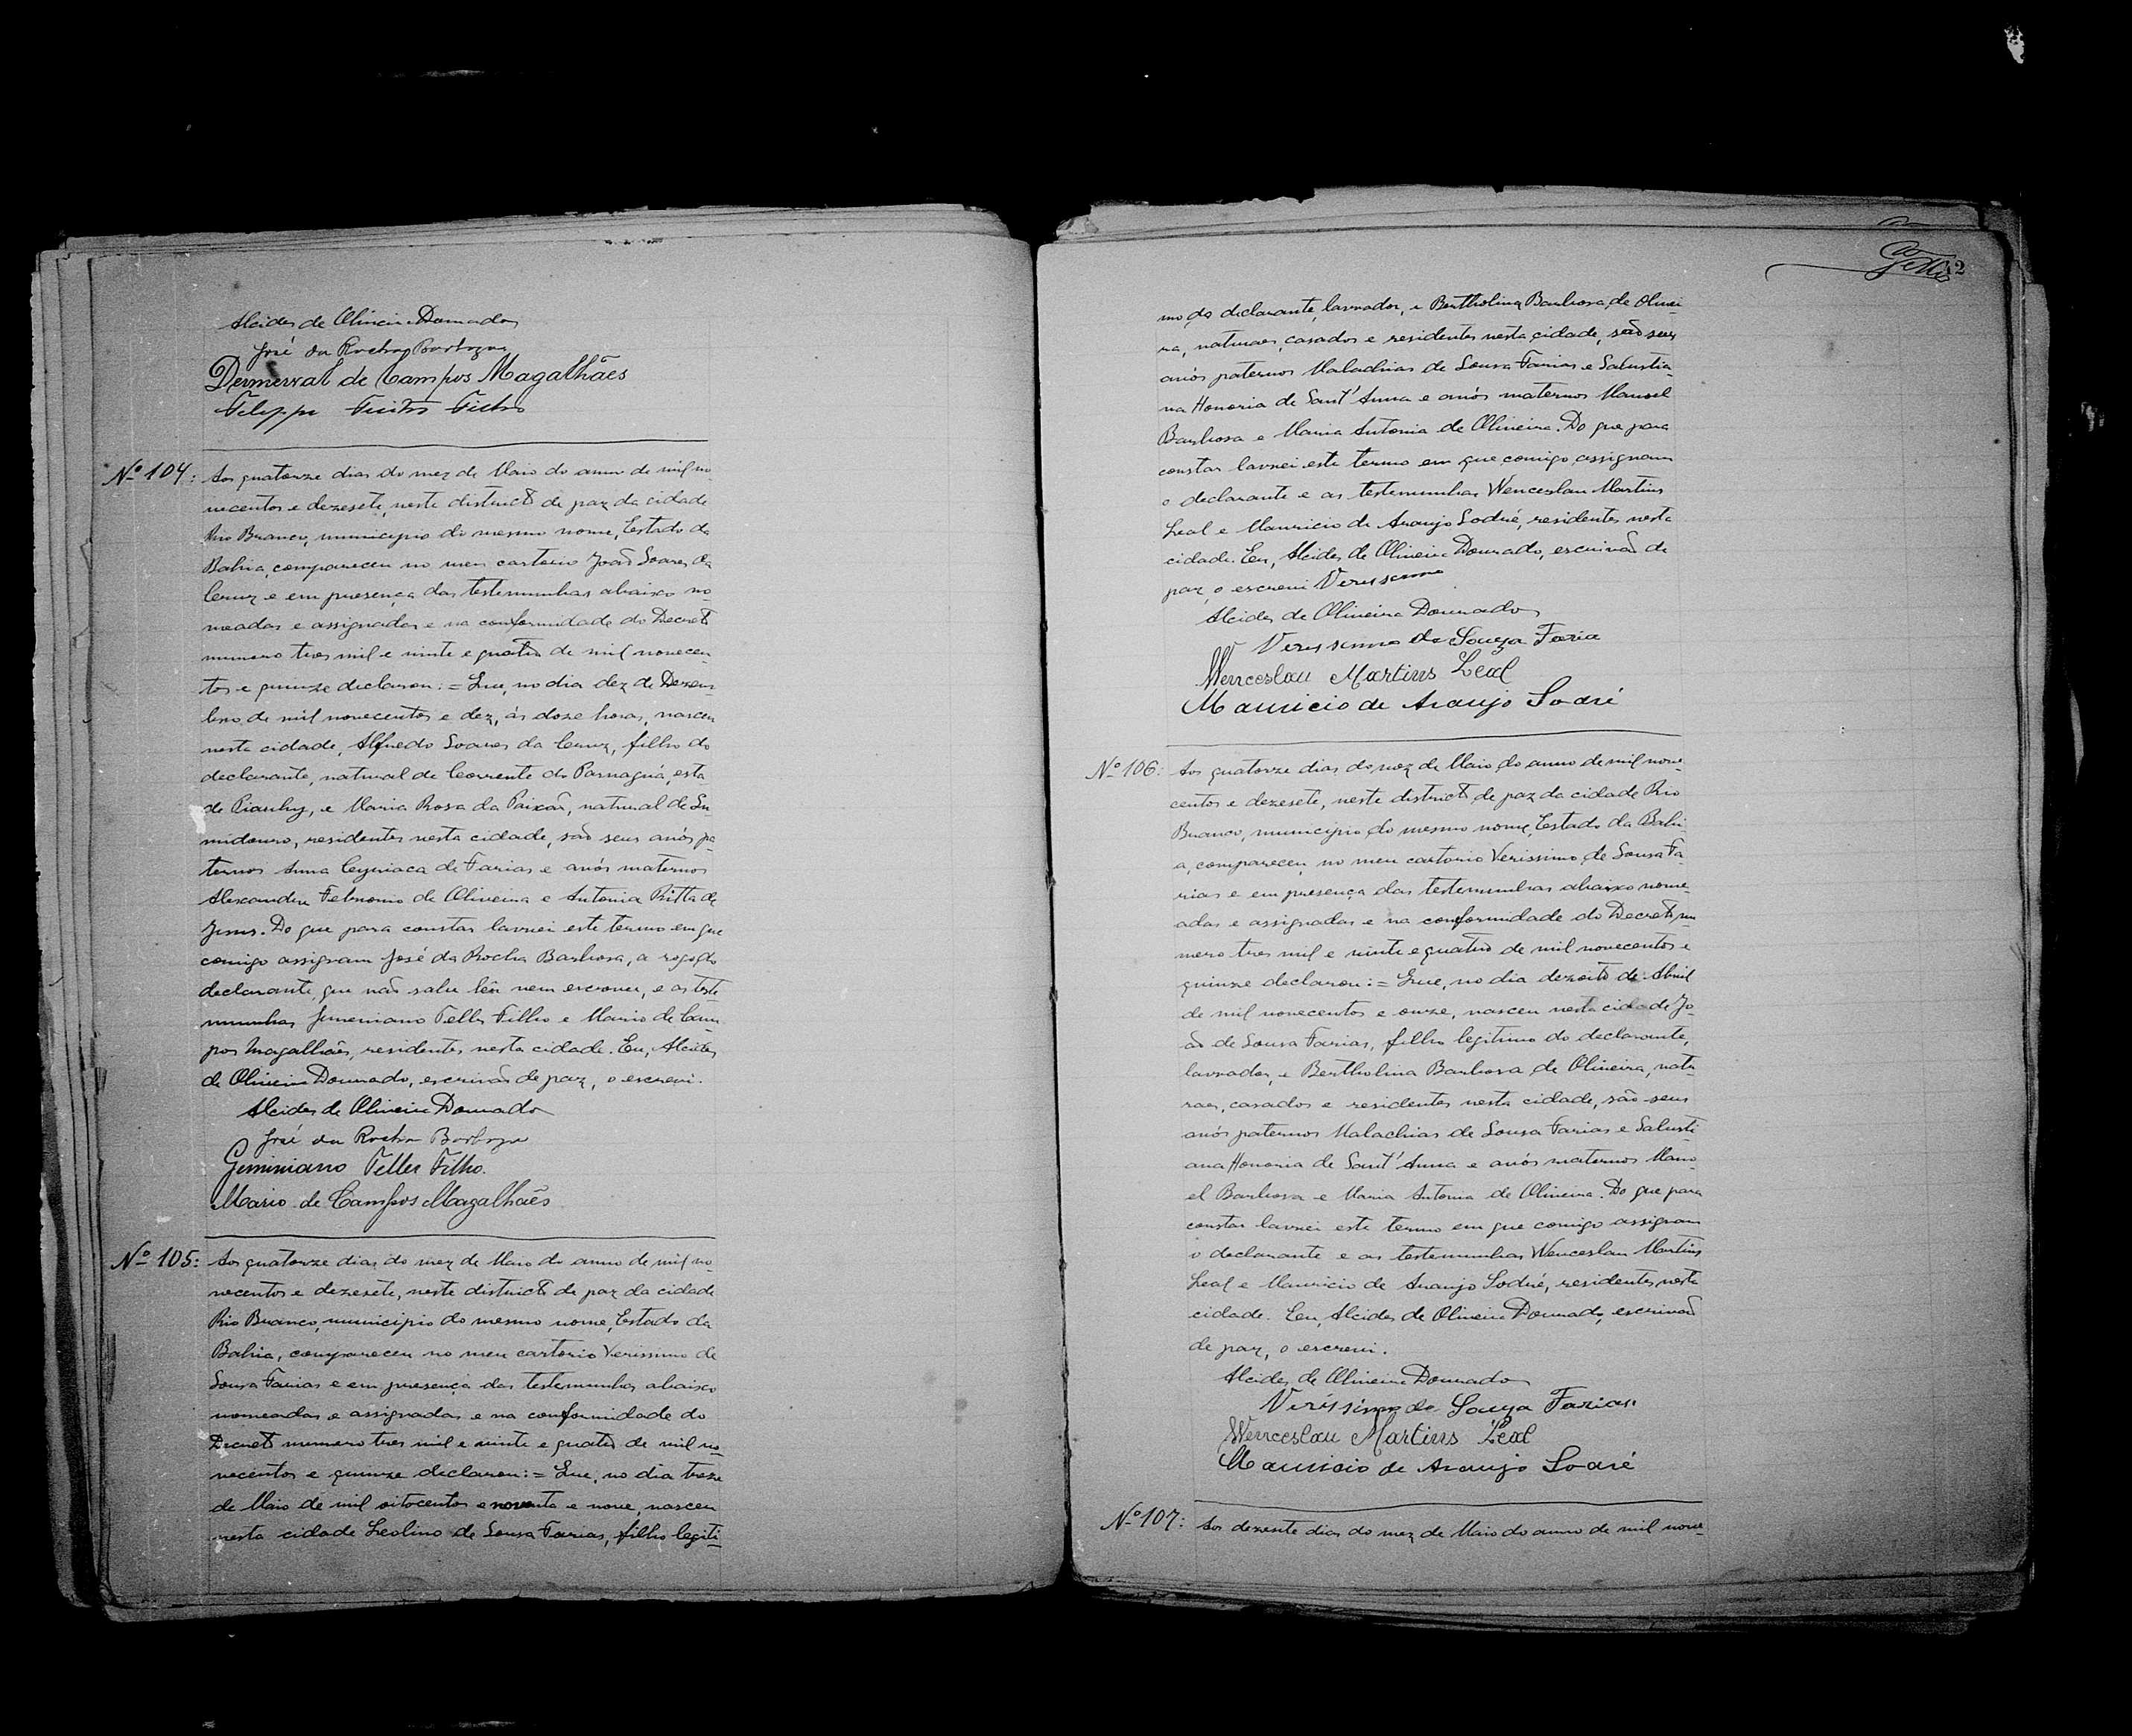 Alcides de Oliveira Dourado
José da Rocha Barboza
Dermerval de Campos Magalhães
Filho
Nº 104: Aos quatorze dias do mez de Maio do anno de mil no-
vecentos e dezesete, neste districto de paz da cidade
Rio Branco, municipio do mesmo nome, Estado da
Bahia, compareceu no meu cartorio João Soares da
Cruz e em presença das testemunhas abaixo no-
meadas e assignadas e na conformidade do Decreto
numero tres mil e vinte e quatro de mil novecen-
tos e quinze declarou: = Que, no dia dez de Dezem-
bro de mil novecentos e dez, ás doze horas, nasceu
nesta cidade, Alfredo Soares da Cruz, filho do
declarante, natural de Corrente do Parnaguá, esta
do Piauhy, e Maria Rosa da Paixão, natural de Su-
midouro, residentes nesta cidade, são seus avós pa
ternos Anna Cyriaca de Farias e avós maternos
Alexandre Febronio de Oliveira e Antonia Ritta de
Jesus. Do que para constar lavrei este termo em que
comigo assignam José da Rocha Barbosa, a rogo do
declarante, que não sabe lêr nem escrever, e as teste
munhas Jeminiano Telles Filho e Mario de Cam-
pos Magalhães, residentes nesta cidade. Eu, Alcides
de Oliveira Dourado, escrivão de paz, o escrevi.
Alcides de Oliveira Dourado
José da Rocha Barboza
Geminiano Telles Filho.
Mario de Campos Magalhaẽs
Nº 105: Aos quatorze dias do mez de Maio do anno de mil no-
vecentos e dezesete, neste districto de paz da cidade
Rio Branco, municipio do mesmo nome, Estado da
Bahia, compareceu no meu cartorio Verissimo de
Sousa Farias e em presença das testemunhas abaixo
nomeadas e assignadas e na conformidade do
Decreto numero tres mil e vinte e quatro de mil no-
vecentos e quinze declarou: = Que, no dia treze
de Maio de mil oitocentos e noventa e nove, nasceu
nesta cidade Leolino de Sousa Farias, filho legiti-
12
mo do declarante, lavrador, e Bertholina Barbosa de Olivei
ra, naturaes, casados e residentes nesta cidade, são seus
avós paternos Malachias de Sousa Farias e Salustia-
na Honoria de Sant'Anna e avós maternos Manoel
Barbosa e Maria Antonia de Oliveira. Do que para
constar lavrei este termo em que comigo assignam
o declarante e as testemunhas Wenceslau Martins
Leal e Mauricio de Araujo Sodré, residentes nesta
cidade. Eu, Alcides de Oliveira Dourado, escrivão de
paz, o escrevi Veressimo
Alcides de Oliveira Dourado
Veressimo de Souza Faria
Wenceslau Martins Leal
Mauricio de Araujo Sodré
Nº 106: Aos quatorze dias do mez de Maio do anno de mil nove-
centos e dezesete, neste districto de paz da cidade Rio
Branco, municipio do mesmo nome, Estado da Bahi
a, compareceu no meu cartorio Verissimo de Sousa Fa
rias e em presença das testemunhas abaixo nome-
adas e assignadas e na conformidade do Decreto nu
mero tres mil e vinte e quatro de mil novecentos e
quinze declarou: = Que, no dia dezoito de Abril
de mil novecentos e onze, nasceu nesta cidade Jo-
ão de Sousa Farias, filho legitimo do declarante,
lavrador, e Bertholina Barbosa de Oliveira, natu-
raes, casados e residentes nesta cidade, são seus
avós paternos Malachias de Sousa Farias e Salusti-
ana Honoria de Sant'Anna e avós maternos Mano-
el Barbosa e Maria Antonia de Oliveira. Do que para
constar lavrei este termo em que comigo assignam
o declarante e as testemunhas Wenceslau Martins
Leal e Mauricio de Araujo Sodré, residentes nesta
cidade. Eu, Alcides de Oliveira Dourado, escrivão
de paz, o escrevi.
Alcides de Oliveira Dourado
Veríssimo de Souza Farias.
Wenceslau Martins Leal
Mauricio de Araujo Sodré
Nº 107: Aos dezesete dias do mez de Maio do anno de mil nove-